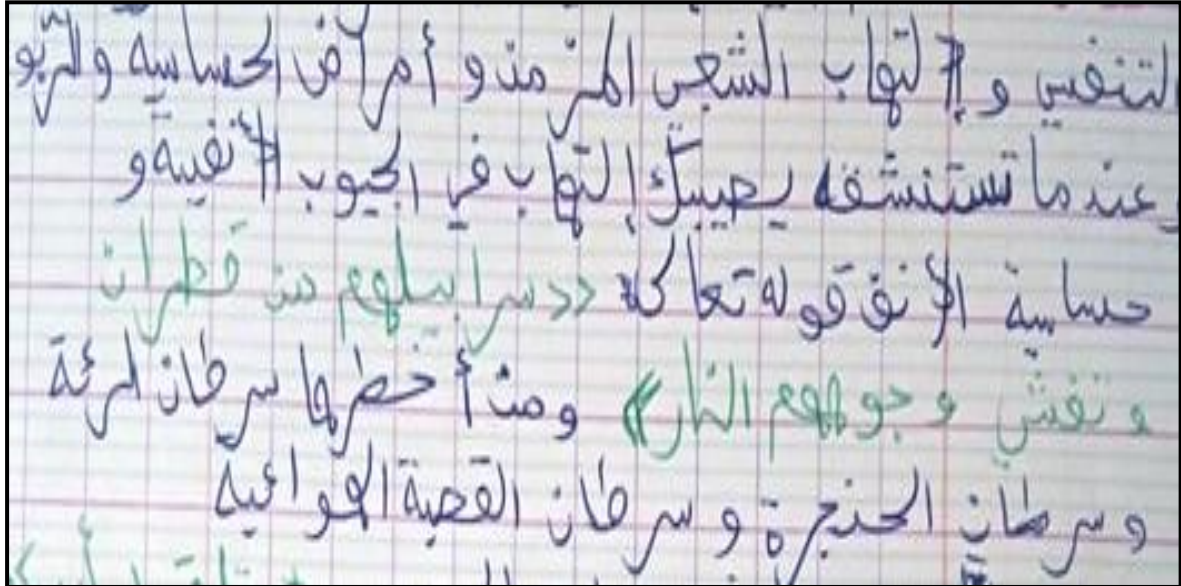 التنفسي و إلتهاب الشعبي المزمن و أمراض الحساسية والربو
وعندما تستنشقه يصيبك إلتهاب في الجيوب الأنفية و
حساسية الأنف قوله تعالى «سرابيلهم من قطران
و تغشى وجوههم النار» ومن أخطرها سرطان الرئة
و سرطان الحنجرة و سرطان القصبة الهوائية